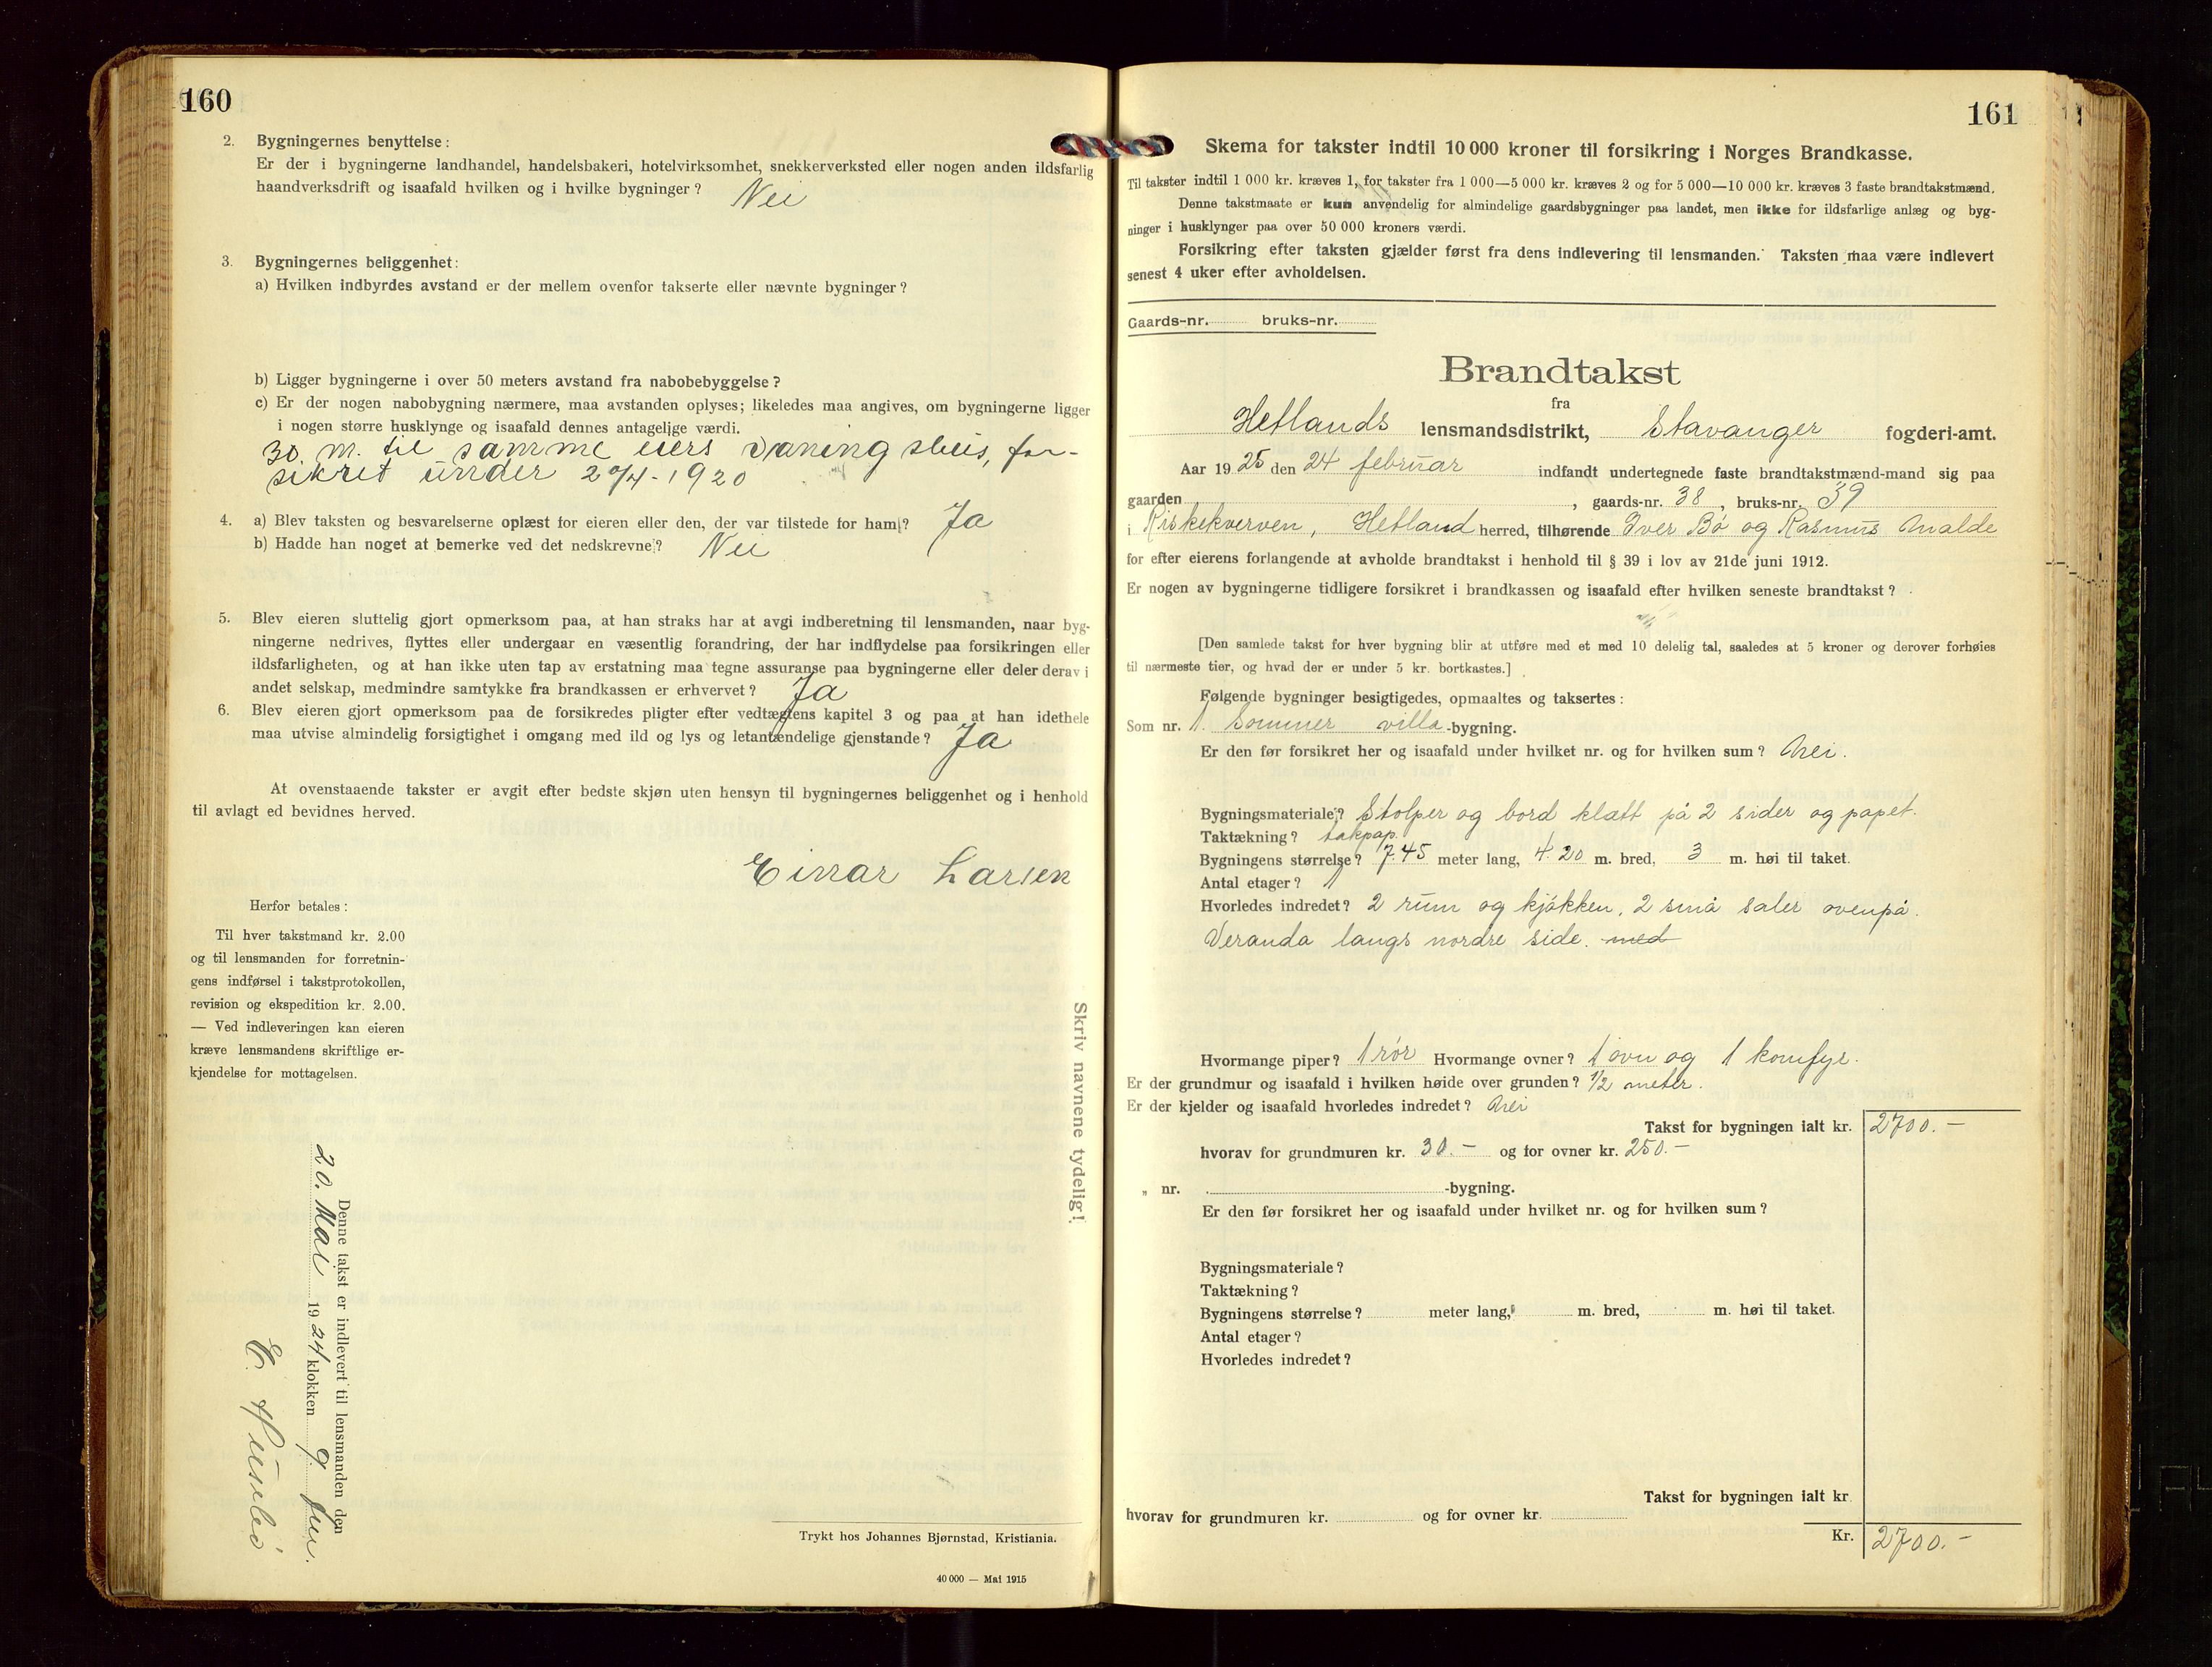 160
2. Bygningernes benyttelse:
Er der i bygningerne landhandel, handelsbakeri, hotelvirksomhet, snekkerverksted eller nogen anden ildsfarlig
haandverksdrift og isaafald hvilken og i hvilke bygninger? Nei
3. Bygningernes beliggenhet:
a) Hvilken indbyrdes avstand er der mellem ovenfor takserte eller nævnte bygninger?
b) Ligger bygningerne i over 50 meters avstand fra nabobebyggelse?
c) Er der nogen nabobygning nærmere, maa avstanden oplyses; likeledes maa angives, om bygningerne ligger
i nogen større husklynge og isaafald dennes antagelige værdi.
30. m. til samme eiers vaningshus, for-
sikret under 20/4-1920
4. a) Blev taksten og besvarelserne oplæst for eieren eller den, der var tilstede for ham? Ja
b) Hadde han noget at bemerke ved det nedskrevne? Nei
5. Blev eieren sluttelig gjort opmerksom paa, at han straks har at avgi indberetning til lensmanden, naar byg-
ningerne nedrives, flyttes eller undergaar en væsentlig forandring, der har indflydelse paa forsikringen eller
ildsfarligheten, og at han ikke uten tap av erstatning maa tegne assuranse paa bygningerne eller deler derav i
andet selskap, medmindre samtykke fra brandkassen er erhvervet? Ja
6. Blev eieren gjort opmerksom paa de forsikredes pligter efter vedtægtens kapitel 3 og paa at han idethele
maa utvise almindelig forsigtighet i omgang med ild og lys og letantændelige gjenstande? Ja
At ovenstaaende takster er avgit efter bedste skjøn uten hensyn til bygningernes beliggenhet og i henhold
til avlagt ed bevidnes herved.
Einar Larsen
Herfor betales:
Til hver takstmand kr. 2.00
og til lensmanden for forretnin-
gens indførsel i takstprotokollen,
revision og ekspedition kr. 2.00.
— Ved indleveringen kan eieren
kræve lensmandens skriftlige er-
kjendelse for mottagelsen.
Skriv navnene tydelig!
Denne takst er indlevert til lensmanden den
20. Mai 1924 klokken 9 fm.
E. Husebø
Trykt hos Johannes Bjørnstad, Kristiania.
40 000 — Mai 1915
161
Skema for takster indtil 10 000 kroner til forsikring i Norges Brandkasse.
Til takster indtil 1 000 kr. kræves 1, for takster fra 1 000—5 000 kr. kræves 2 og for 5 000—10 000 kr. kræves 3 faste brandtakstmænd.
Denne takstmaate er kun anvendelig for almindelige gaardsbygninger paa landet, men ikke for ildsfarlige anlæg og byg-
ninger i husklynger paa over 50 000 kroners værdi.
Forsikring efter taksten gjælder først fra dens indlevering til lensmanden. Taksten maa være indlevert
senest 4 uker efter avholdelsen.
Gaards-nr. bruks-nr.
Brandtakst
fra
Hetlands lensmandsdistrikt, Stavanger fogderi-amt.
Aar 1925 den 24 februar indfandt undertegnede faste brandtakstmænd-mand sig paa
gaarden , gaards-nr. 38, bruks-nr. 39
i Riskekverven, Hetland herred, tilhørende Iver Bø og Rasmus Malde
for efter eierens forlangende at avholde brandtakst i henhold til § 39 i lov av 21de juni 1912.
Er nogen av bygningerne tidligere forsikret i brandkassen og isaafald efter hvilken seneste brandtakst?
[Den samlede takst for hver bygning blir at utføre med et med 10 delelig tal, saaledes at 5 kroner og derover forhøies
til nærmeste tier, og hvad der er under 5 kr. bortkastes.]
Følgende bygninger besigtigedes, opmaaltes og taksertes:
Som nr. 1. Sommer villa-bygning.
Er den før forsikret her og isaafald under hvilket nr. og for hvilken sum? Nei.
Bygningsmateriale? Stolper og bord klætt på 2 sider og papet.
Taktækning? takpap.
Bygningens størrelse? 7.45 meter lang, 4.20 m. bred, 3 m. høi til taket.
Antal etager? 1
Hvorledes indredet? 2 rum og kjøkken, 2 små saler ovenpå.
Veranda langs nordre side. med
Hvormange piper? 1 rör Hvormange ovner? 1 ovn og 1 komfyr.
Er der grundmur og isaafald i hvilken høide over grunden? 1/2 meter.
Er der kjelder og isaafald hvorledes indredet? Nei
Takst for bygningen ialt kr. 2700.-
hvorav for grundmuren kr. 30.- og for ovner kr. 250.-
„ nr. -bygning.
Er den før forsikret her og isaafald under hvilket nr. og for hvilken sum?
Bygningsmateriale?
Taktækning?
Bygningens størrelse? meter lang, m. bred, m. høi til taket.
Antal etager?
Hvorledes indredet?
Takst for bygningen ialt kr.
hvorav for grundmuren kr. og for ovner kr.
Kr. 2700.-